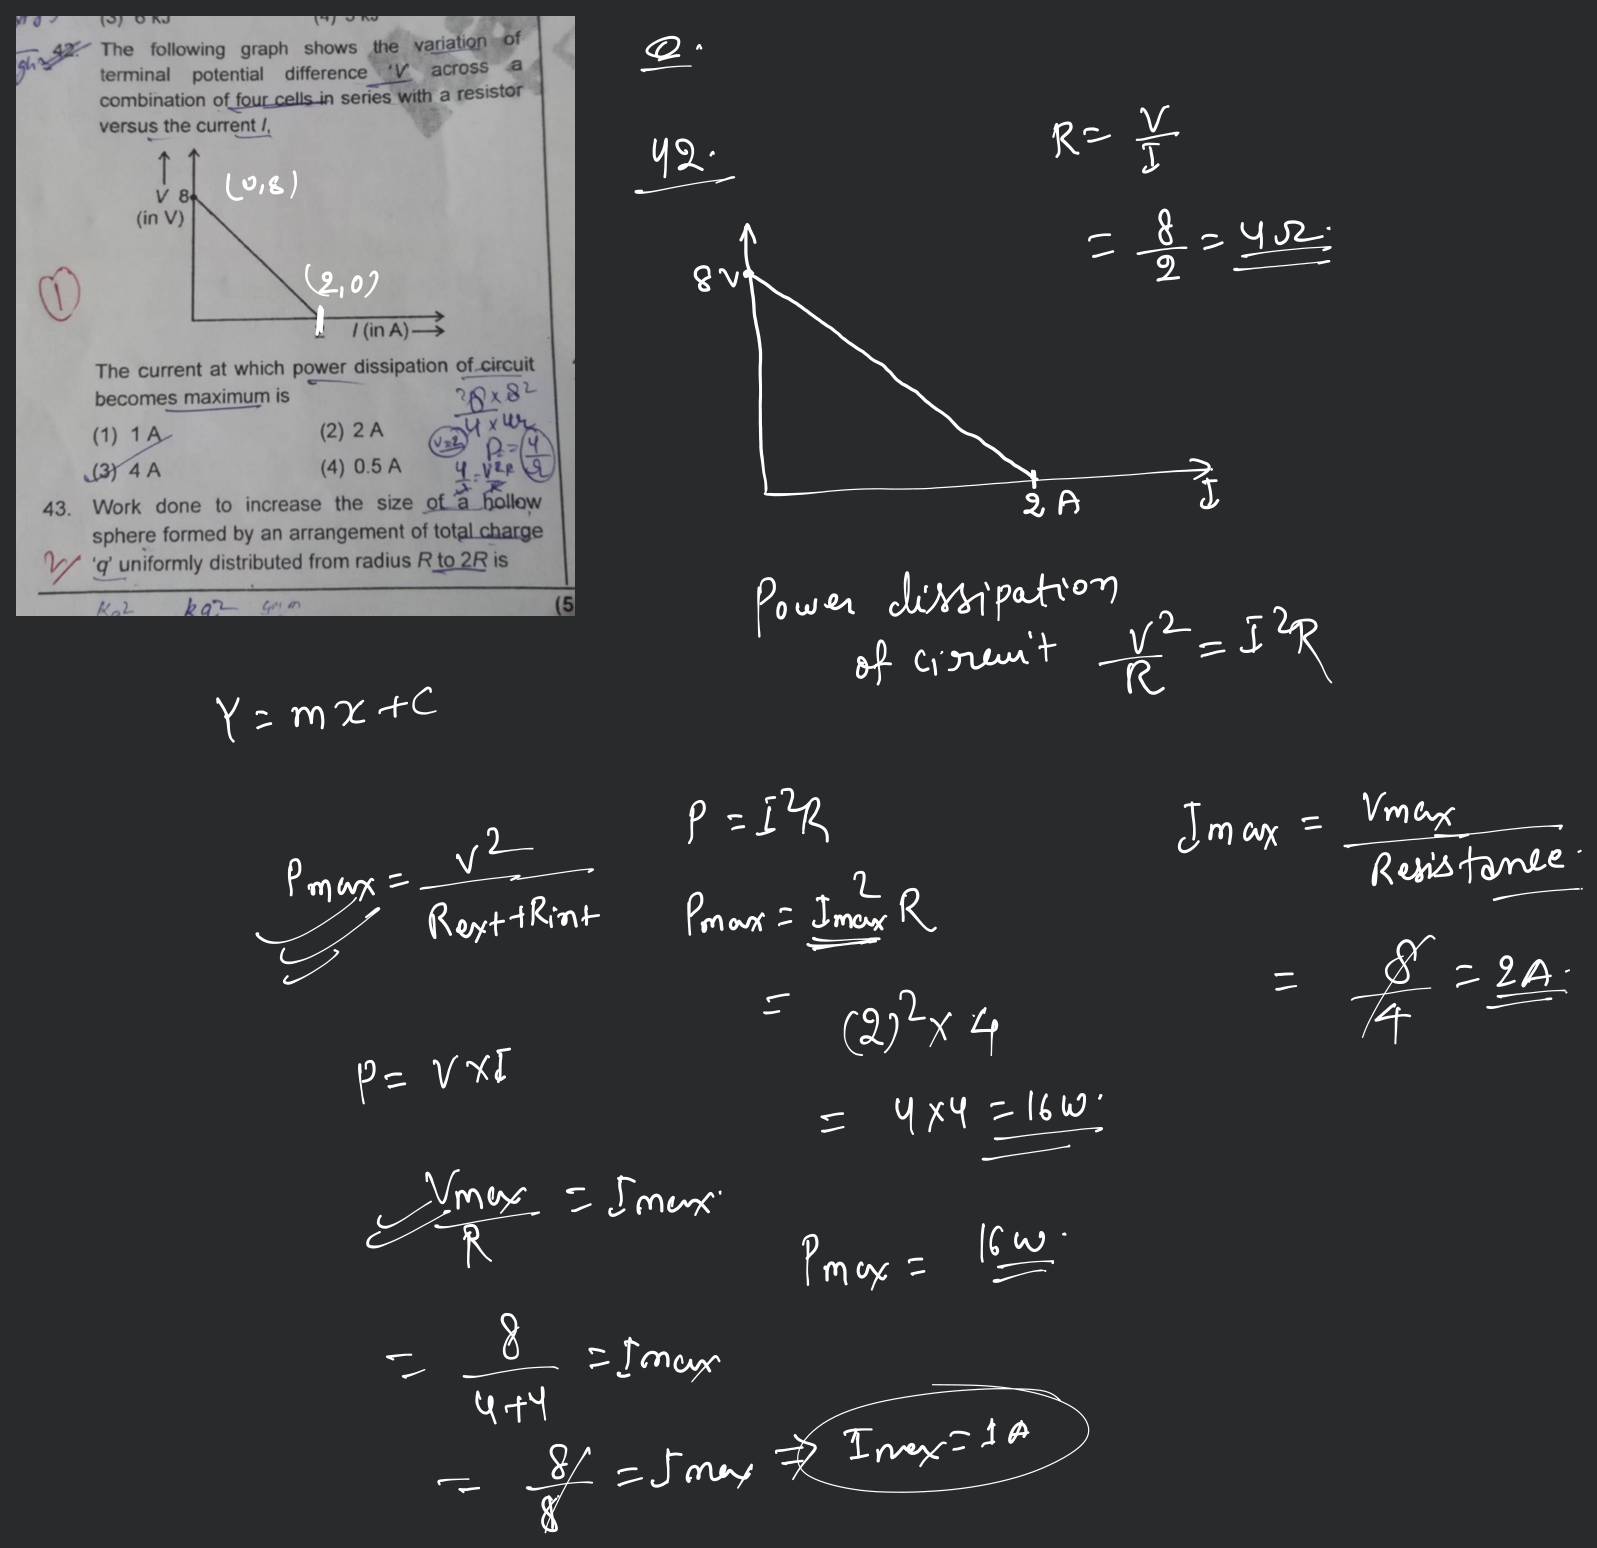 (3) 6 KJ (4) 5 KJ
42. The following graph shows the variation of
terminal potential difference 'V' across a
combination of four cells in series with a resistor
versus the current I.
V 8
(in V)
(0,8)
(2,0)
2
I (in A)
1
The current at which power dissipation of circuit
becomes maximum is
(1) 1 A (2) 2 A
(3) 4 A (4) 0.5 A
43. Work done to increase the size of a hollow
sphere formed by an arrangement of total charge
'q' uniformly distributed from radius R to 2R is
(5
Q.
42.
R = V/I
= 8/2 = 4Ω.
8V
2 A
I
Power dissipation
of circuit V²/R = I²R
Y = mx + C
Pmax = V²/Rext+Rint
P = V×I
Vmax/R = Imax.
= 8/4+4 = Imax
= 8/8 = Imax ⇒ Imax = 1A
P = I²R
Pmax = Imax² R
= (2)² × 4
= 4×4 = 16W.
Pmax = 16W.
Imax = Vmax/Resistance.
= 8/4 = 2A.